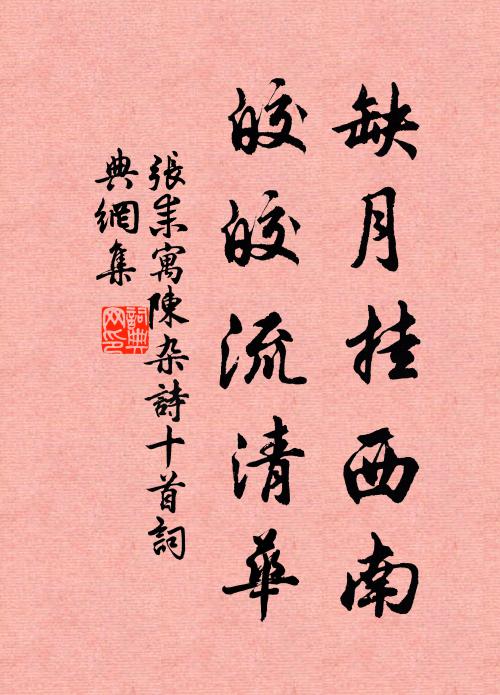 缺月挂西南
皎皎流清華
張耒寓陳杂詩十首詞
典網集
詞典
网印